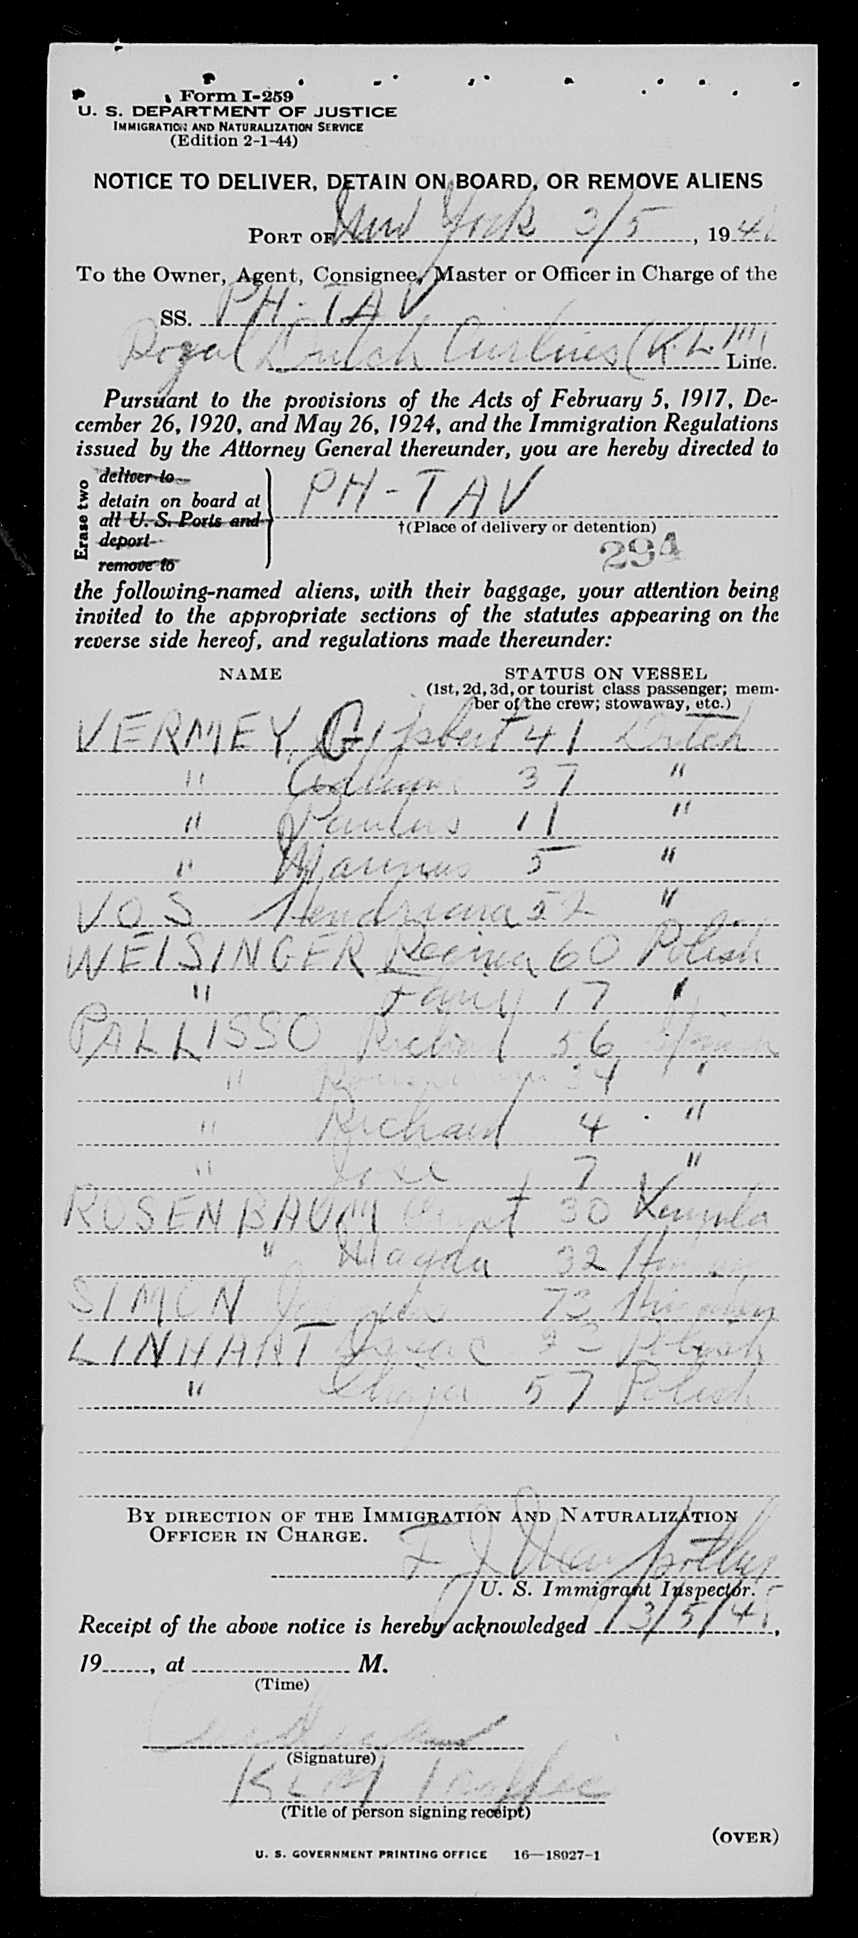 Form I-259
U. S. DEPARTMENT OF JUSTICE
IMMIGRATION AND NATURALIZATION SERVICE
(Edition 2-1-44)
NOTICE TO DELIVER, DETAIN ON BOARD, OR REMOVE ALIENS
PORT OF New York 3/5, 194
To the Owner, Agent, Consignee, Master or Officer in Charge of the
SS. PH-TAV
Royal Dutch Airlines (K.L.M) Line.
Pursuant to the provisions of the Acts of February 5, 1917, De-
cember 26, 1920, and May 26, 1924, and the Immigration Regulations
issued by the Attorney General thereunder, you are hereby directed to
Erase two
deliver to
detain on board at
all U. S. Ports and
deport
remove to
PH-TAV
†(Place of delivery or detention)
294
the following-named aliens, with their baggage, your attention being
invited to the appropriate sections of the statutes appearing on the
reverse side hereof, and regulations made thereunder:
NAME STATUS ON VESSEL
(1st, 2d, 3d, or tourist class passenger; mem-
ber of the crew; stowaway, etc.)
VERMEY, Gijsbert 41 Dutch
" 37 "
" Paulus 11 "
" Marinus 5 "
VOS Hendriana 52 "
WEISINGER Regina 60 Polish
" Fany 17 "
PALLISSO Richard 56
" 34 "
" Richard 4 "
" Jose 7 "
ROSENBAUM 30
" Magda 32
SIMON 73
LINHART Isaac Polish
" Chaja 57 Polish
BY DIRECTION OF THE IMMIGRATION AND NATURALIZATION
OFFICER IN CHARGE.
F J
U. S. Immigrant Inspector.
Receipt of the above notice is hereby acknowledged 3/5/4,
19, at M.
(Time)
(Signature)
KLM Traffic
(Title of person signing receipt)
(OVER)
U. S. GOVERNMENT PRINTING OFFICE 16—18027-1